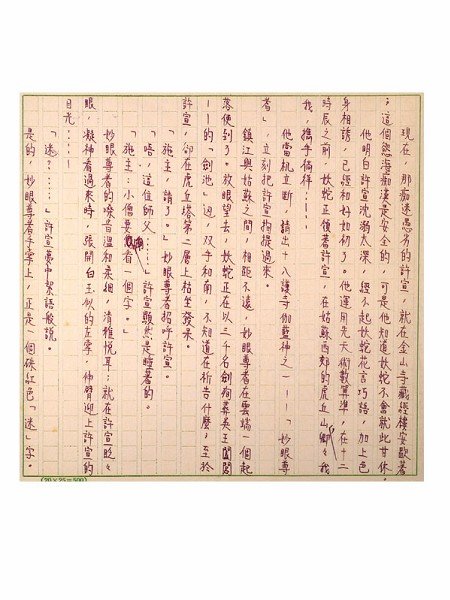 現在，那痴迷愚劣的許宣，就在金山寺藏經樓安歇著
；這個慾海痴漢是安全的，可是他知道妖蛇不會就此甘休。
他明白許宣沈溺太深，經不起妖蛇花言巧語，加上色
身相誘，已經和好如初了。他運用先天術數算準，在十二
時辰之前，妖蛇正復著許宣，在姑蘇西郊的虎丘山卿々我
我，攜手徜徉；——
他當机立斷，請出十八護寺伽藍神之一——「妙眼尊
者」，立刻把許宣拘提過來。
鎮江與姑蘇之間，相距不遠，妙眼尊者在雲端一個起
落便到了。放眼望去，妖蛇正在以三千名劍殉葬吳王闔閭
——的「劍池」邊，双手和南，不知道在祈告什麼；至於
許宣，卻在虎丘塔第二層上枯坐發呆。
「施主，請了。」妙眼尊者招呼許宣。
「唔，這位師父……」許宣顯然是睡著的。
「施主，小僧要你看一個字。」
妙眼尊者的嗓音溫和柔細，清雅悅耳；就在許宣眨々
眼，凝神看過來時，張開白玉似的左掌，伸臂迎上許宣的
目光……
「迷……」許宣夢中絮語般說。
是的，妙眼尊者手掌上，正是一個硃紅色「迷」字。
(20×25=500)